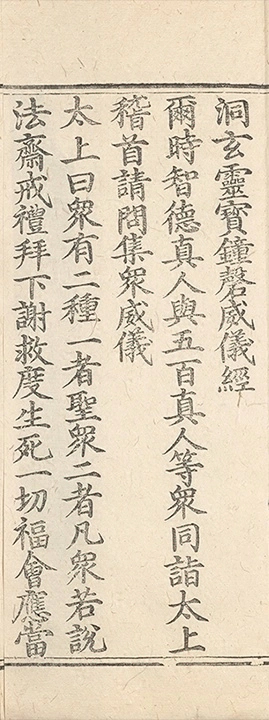 洞玄靈寶鐘磬威儀經
爾時智德真人與五百真人等衆同詣太上
稽首請問集衆威儀
太上曰衆有二種一者聖衆二者凡衆若說
法齋戒禮拜下謝救度生死一切福會應當